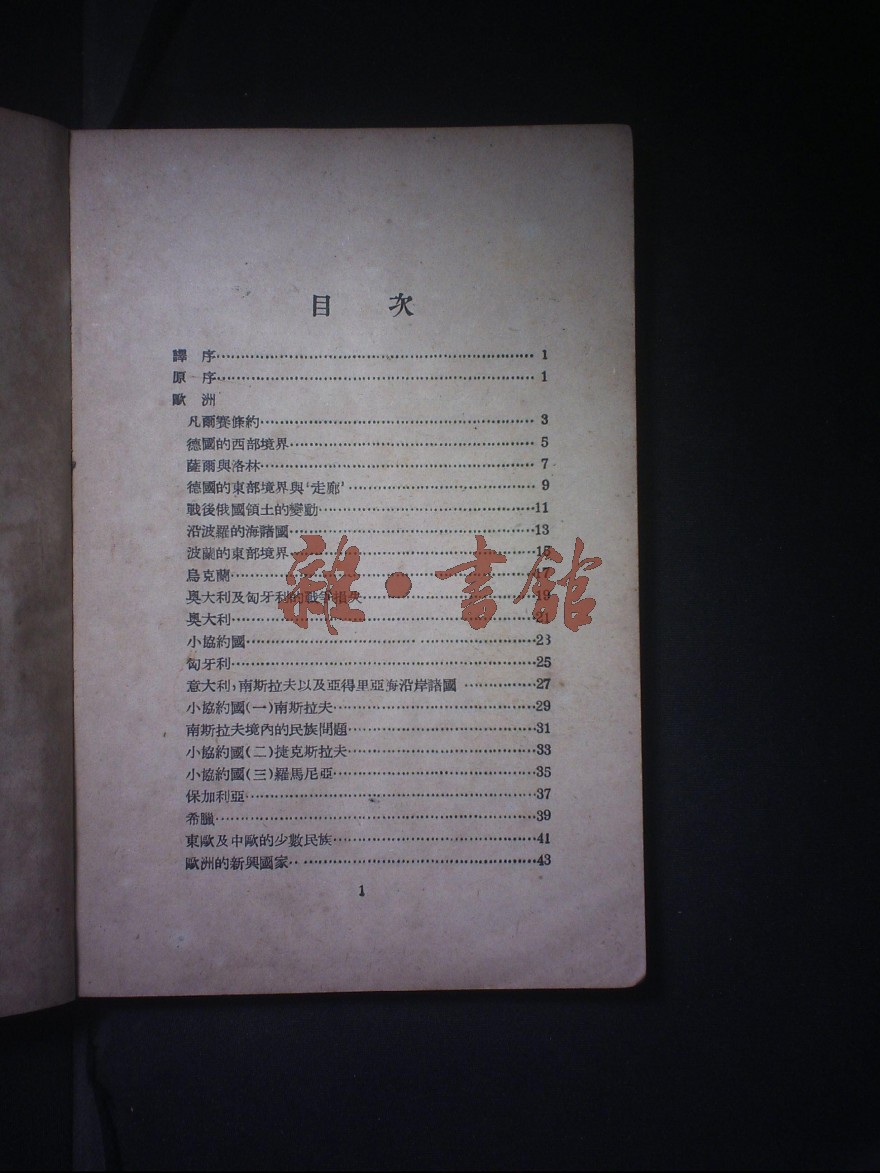 目 次
譯 序 1
原 序 1
歐 洲
凡爾賽條約 3
德國的西部境界 5
薩爾與洛林 7
德國的東部境界與‘走廊’ 9
戰後俄國領土的變動 11
沿波羅的海諸國 13
波蘭的東部境界 15
烏克蘭 17
奧大利及匈牙利的戰爭損失 19
奧大利 21
小協約國 23
匈牙利 25
意大利，南斯拉夫以及亞得里亞海沿岸諸國 27
小協約國(一)南斯拉夫 29
南斯拉夫境內的民族問題 31
小協約國(二)捷克斯拉夫 33
小協約國(三)羅馬尼亞 35
保加利亞 37
希臘 39
東歐及中歐的少數民族 41
歐洲的新興國家 43
1
雜·書館